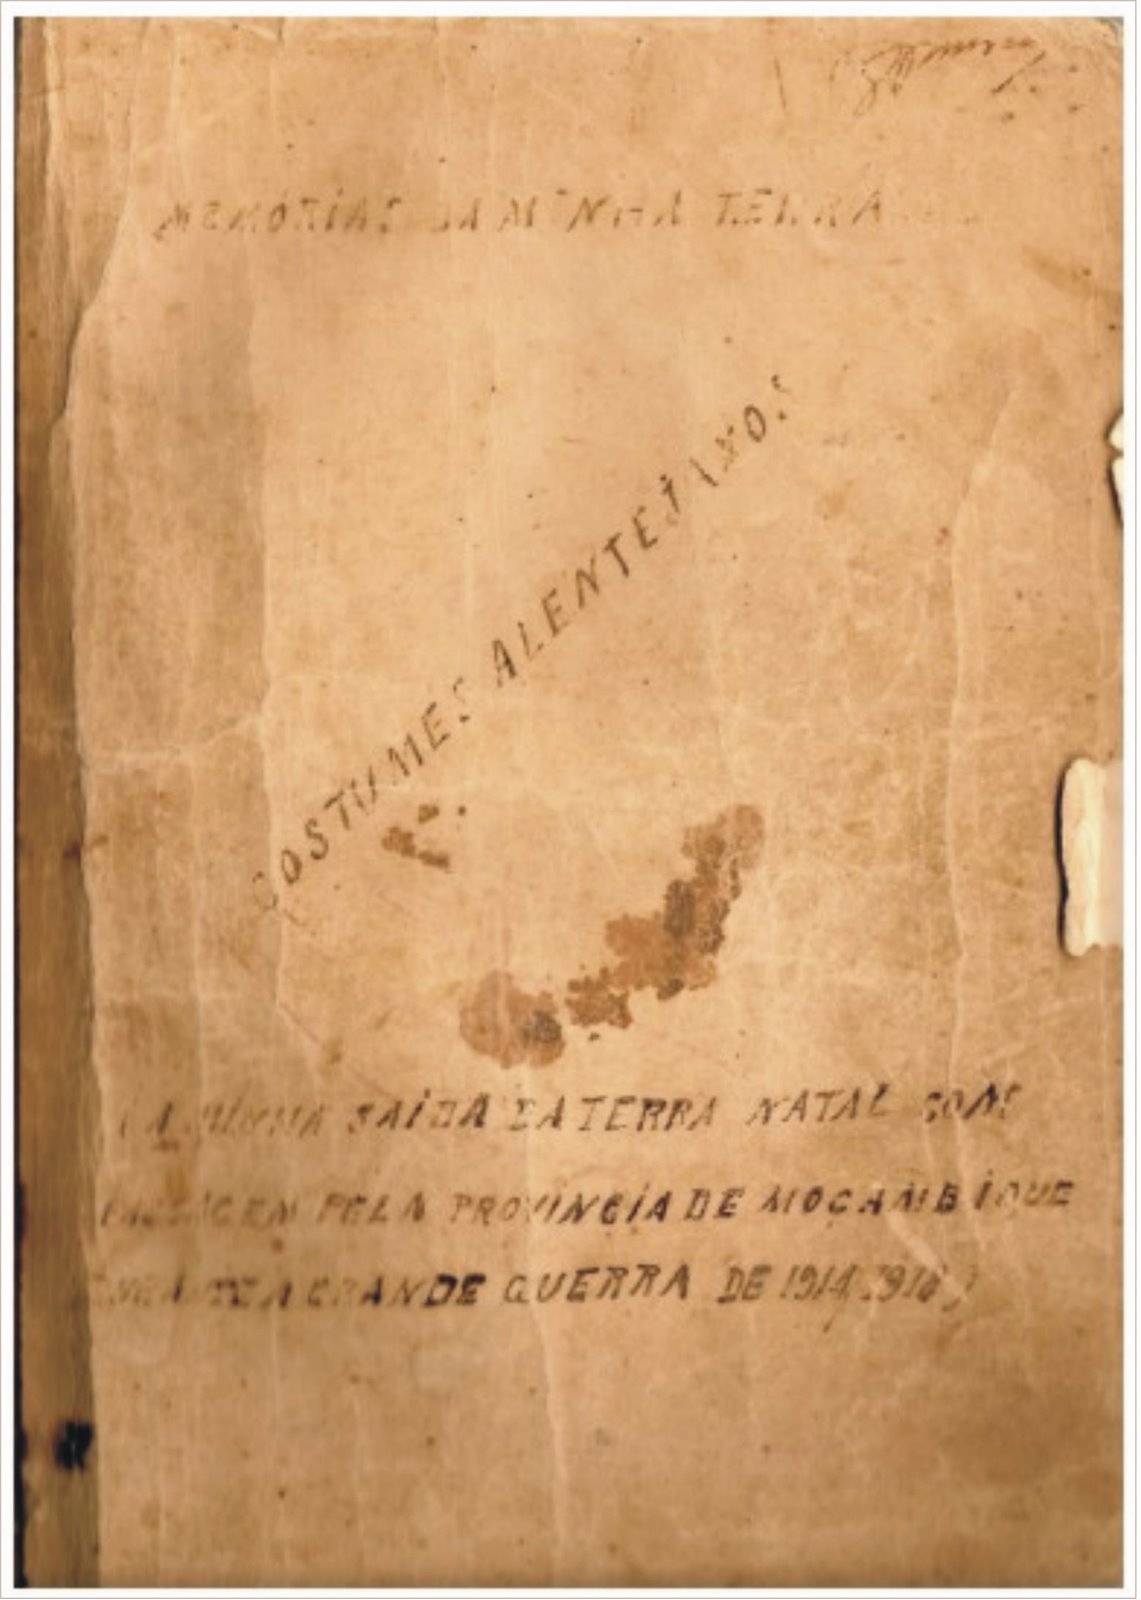 MEMÓRIAS DA MINHA TERRA
COSTUMES ALENTEJANOS
(A MINHA SAÍDA DA TERRA NATAL COM
PASSÁGEM PELA PROVINCIA DE MOÇAMBIQUE
DURANTE A GRANDE GUERRA DE 1914 1918)